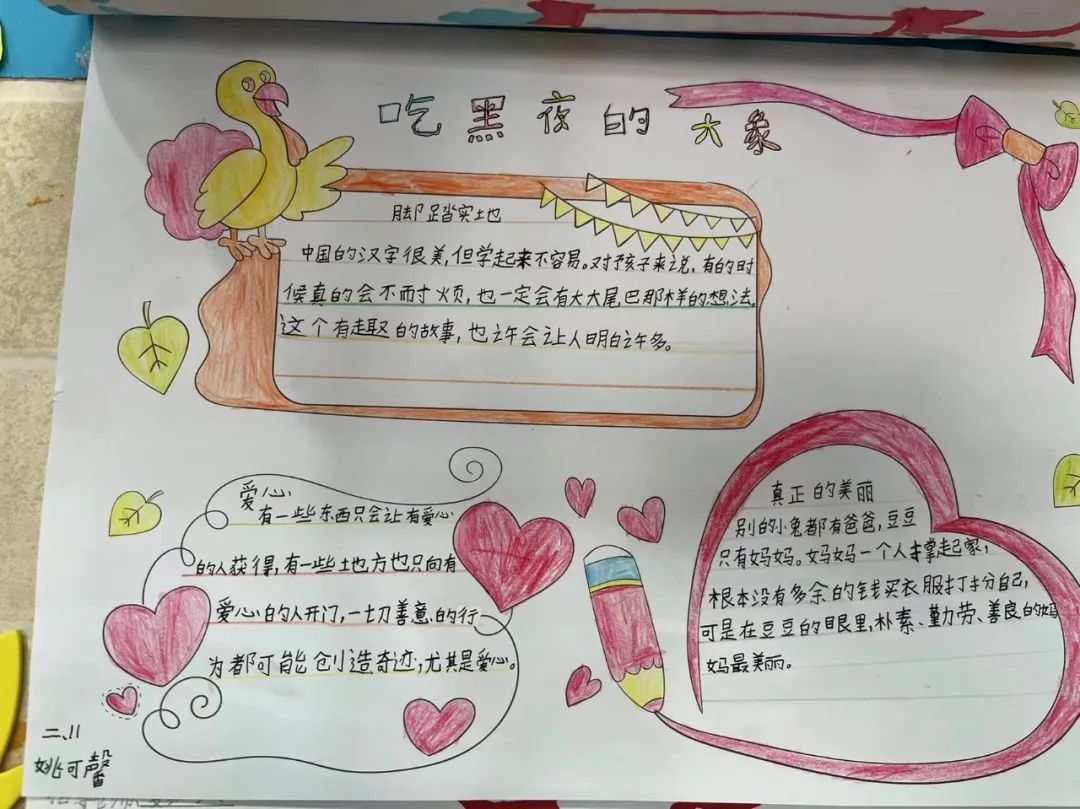 吃黑夜的大象
脚踏实地
中国的汉字很美,但学起来不容易。对孩子来说,有的时
候真的会不耐烦,也一定会有大大尾巴那样的想法。
这个有趣的故事,也许会让人明白许多。
爱心
有一些东西只会让有爱心
的人获得,有一些地方也只向有
爱心的人开门,一切善意的行
为都可能创造奇迹,尤其是爱心。
真正的美丽
别的小兔都有爸爸,豆豆
只有妈妈。妈妈一个人撑起家,
根本没有多余的钱买衣服打扮自己,
可是在豆豆的眼里,朴素、勤劳、善良的妈
妈最美丽。
二、11
姚可馨